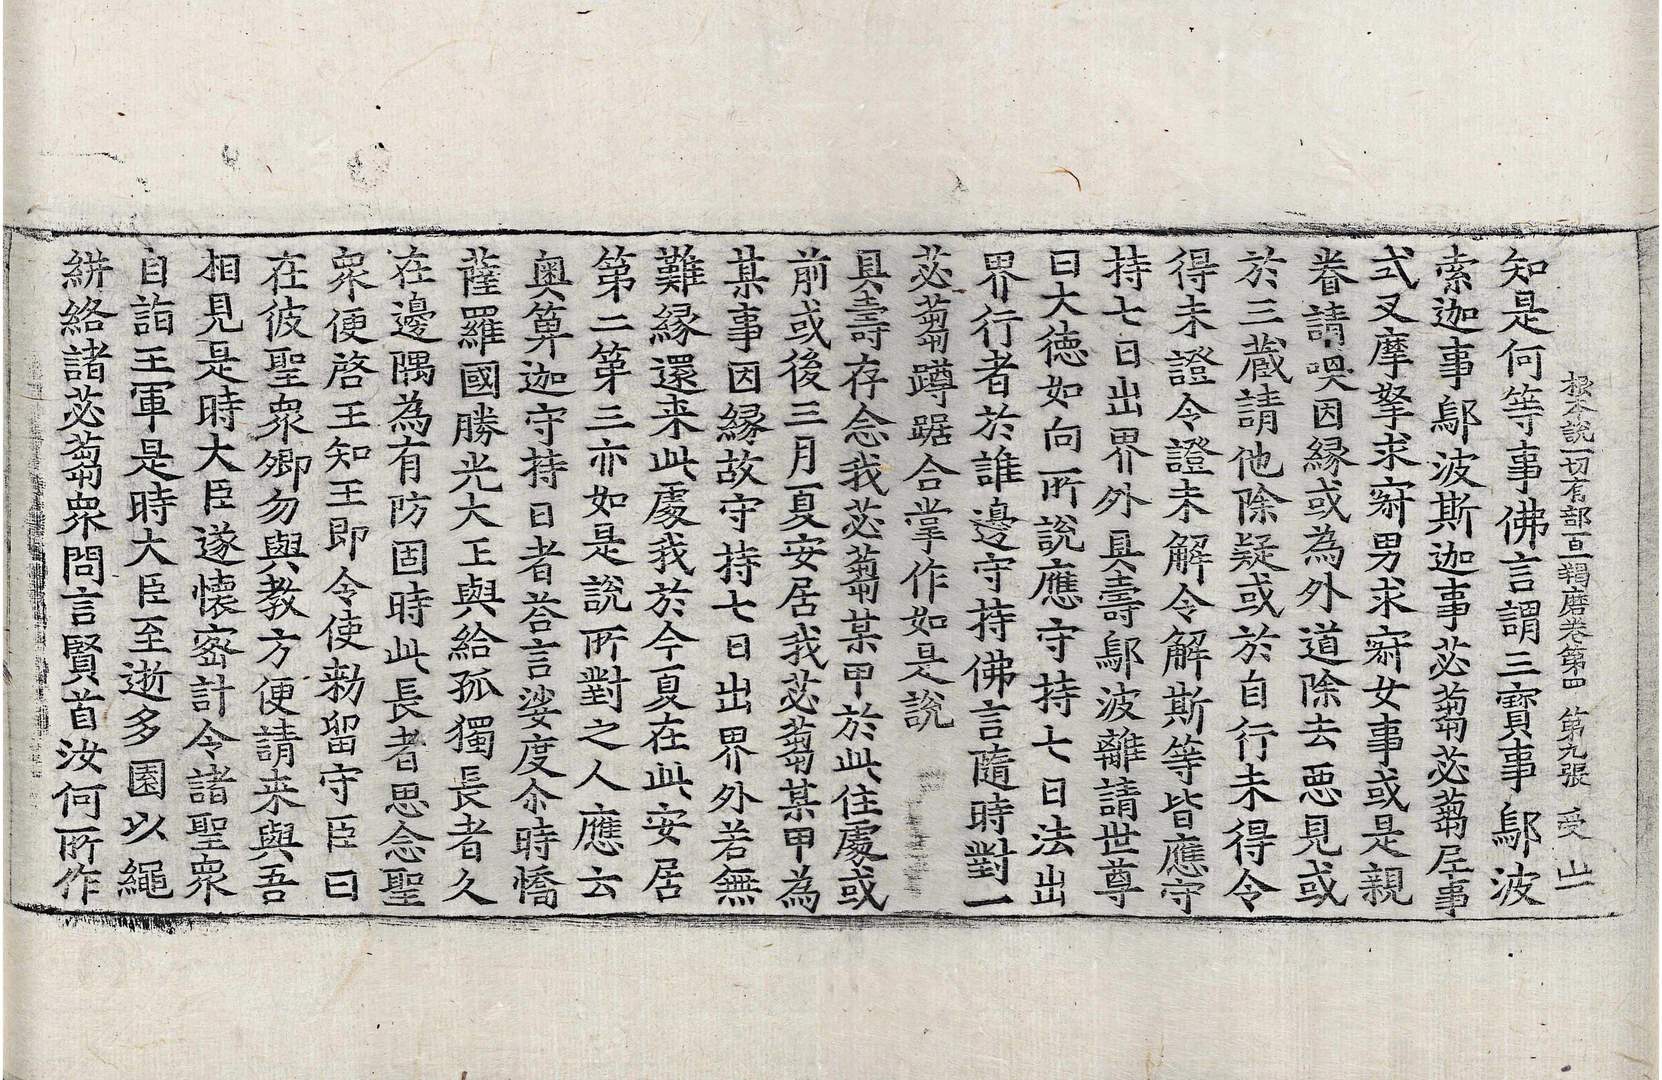 根本說一切有部百一羯磨卷第四 第九張 受
知是何等事佛言謂三寶事鄔波
索迦事鄔波斯迦事苾蒭苾蒭尼事
式叉摩拏求寂男求寂女事或是親
眷請喚因緣或為外道除去惡見或
於三藏請他除疑或於自行未得令
得未證令證未解令解斯等皆應守
持七日出界外具壽鄔波離請世尊
曰大德如向所說應守持七日法出
界行者於誰邊守持佛言隨時對一
苾蒭蹲踞合掌作如是說
具壽存念我苾蒭某甲於此住處或
前或後三月夏安居我苾蒭某甲為
某事因緣故守持七日出界外若無
難緣還来此處我於今夏在此安居
第二第三亦如是說所對之人應云
奧箄迦守持日者荅言娑度尒時憍
薩羅國勝光大王與給孤獨長者久
在邊隅為有防固時此長者思念聖
衆便啓王知王即令使勑留守臣曰
在彼聖衆卿勿與教方便請来與吾
相見是時大臣遂懷密計令諸聖衆
自詣王軍是時大臣至逝多園以繩
絣絡諸苾蒭衆問言賢首汝何所作